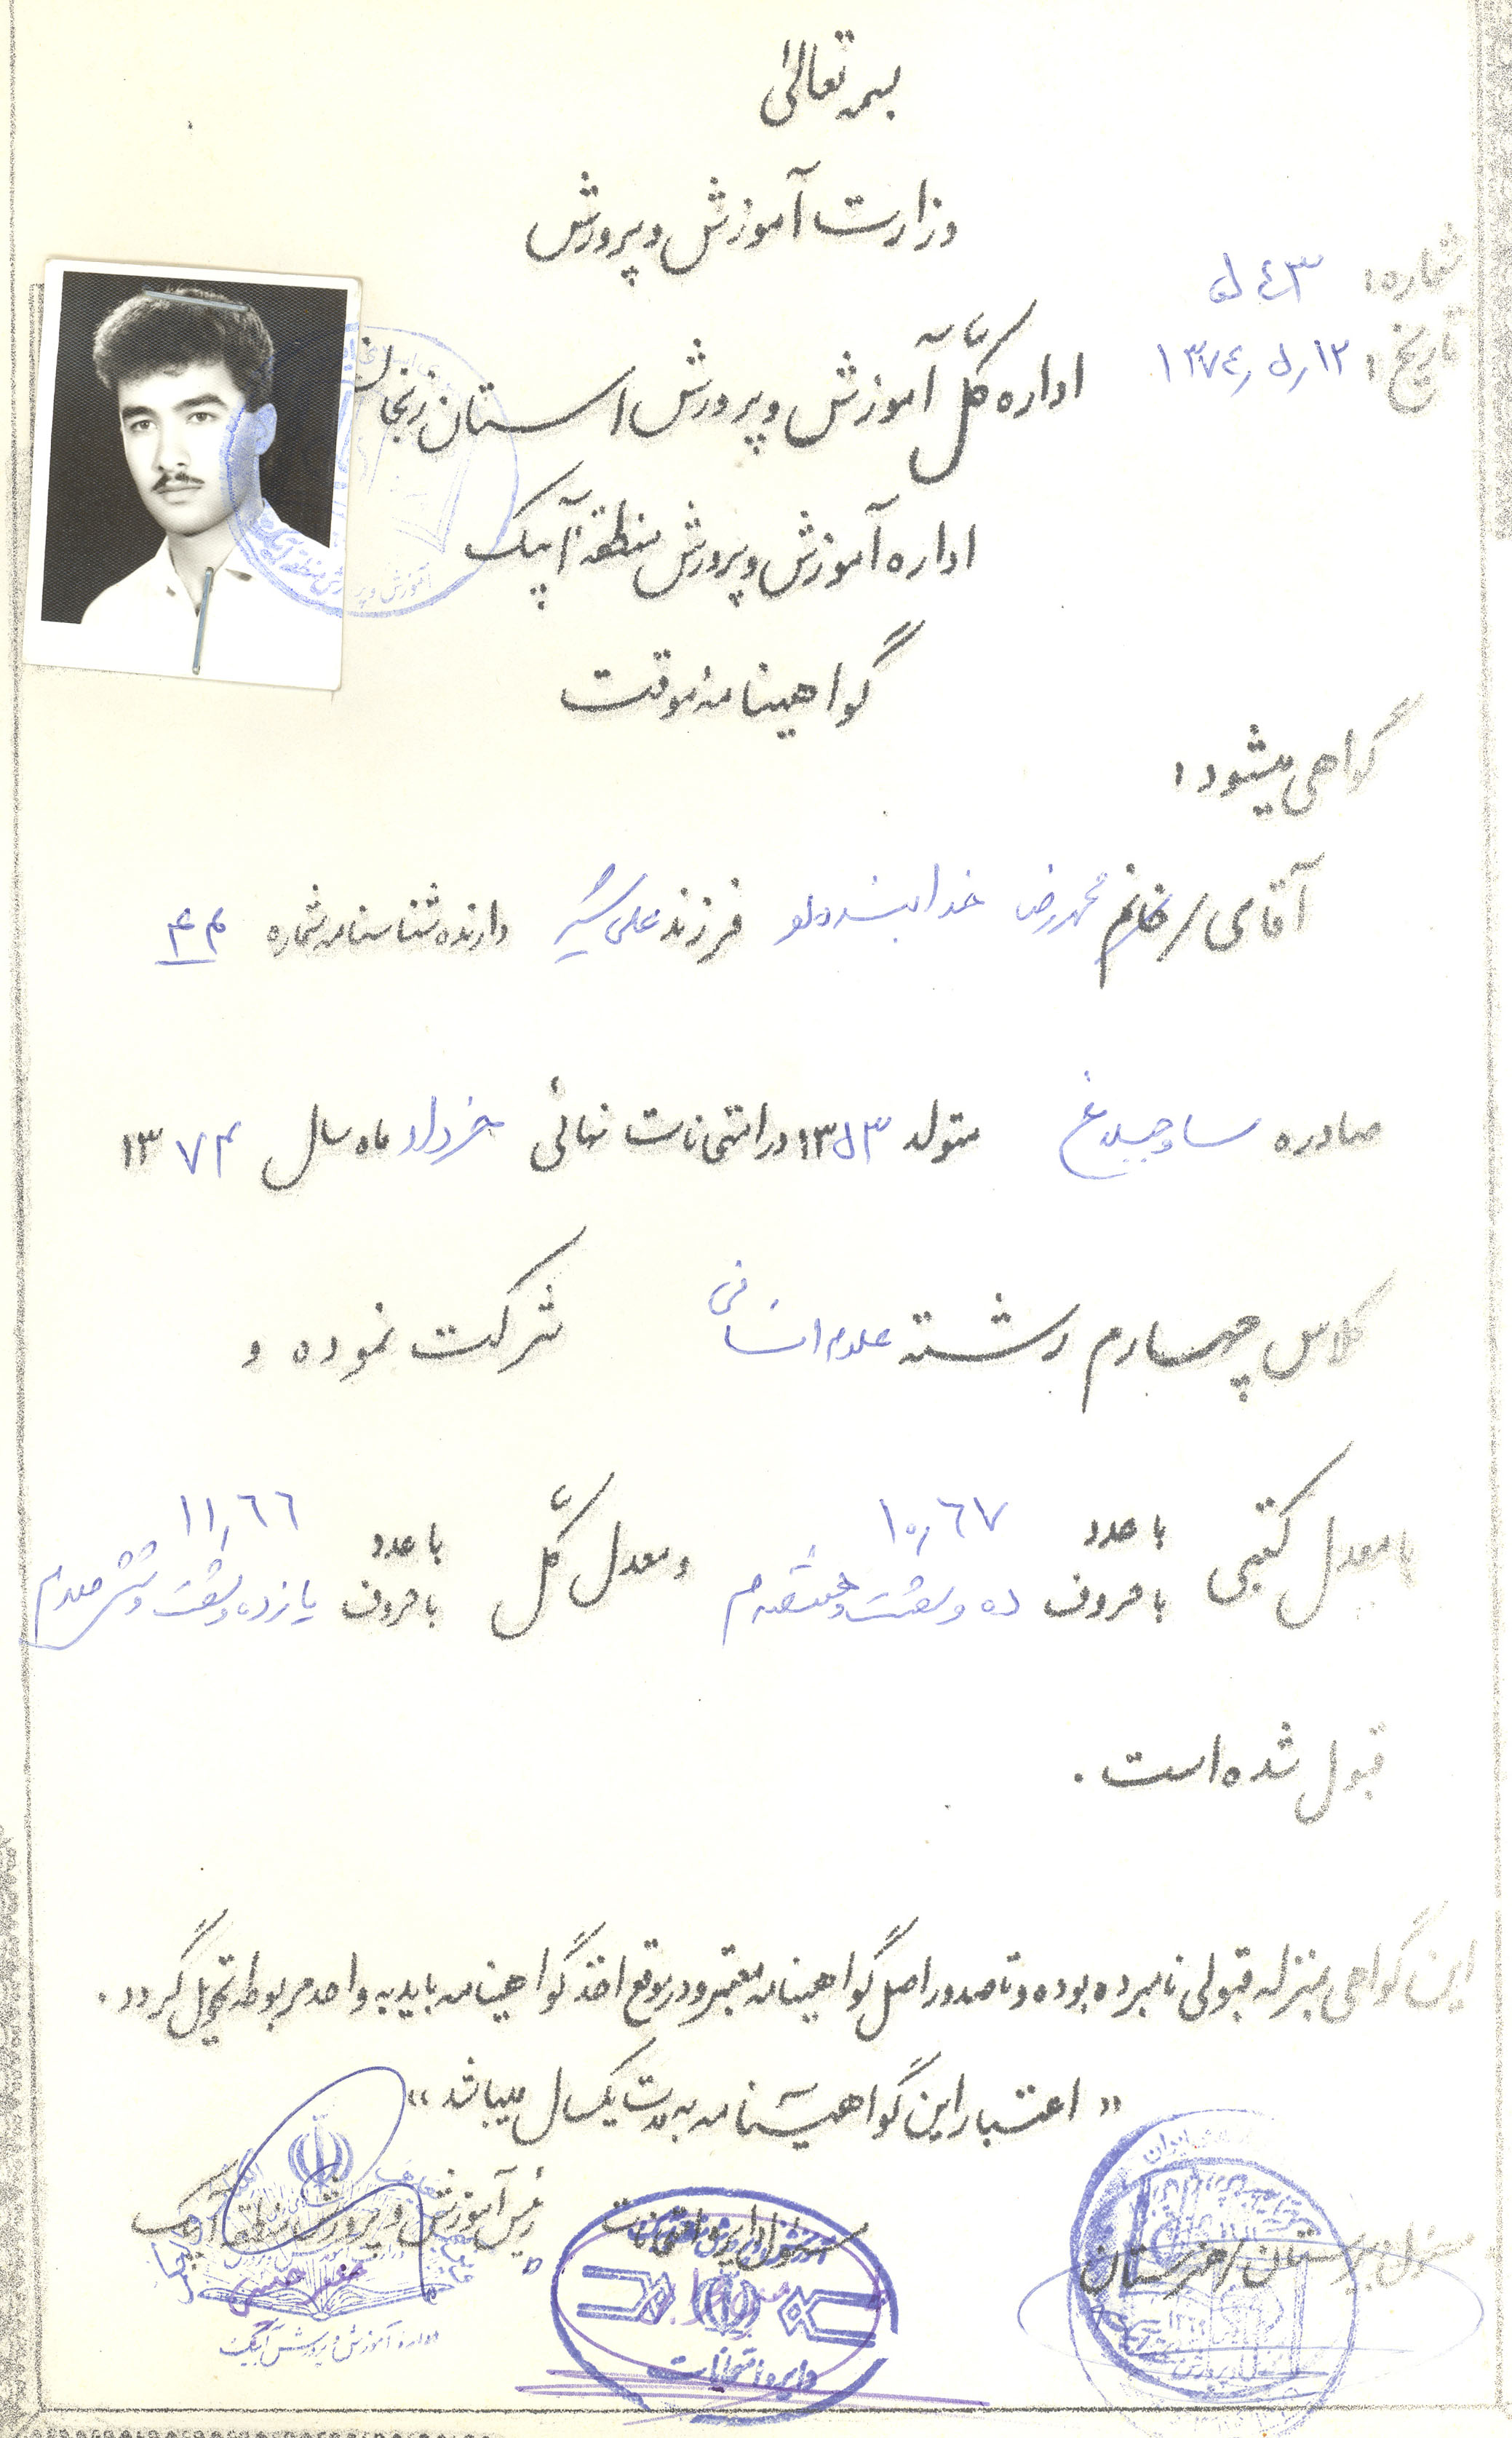 بسمه تعالی
وزارت آموزش و پرورش
شماره: ۵۴۳
تاریخ: ۱۳۷۴٫۵٫۱۲
اداره کل آموزش و پرورش استان زنجان
اداره آموزش و پرورش منطقه آبیک
گواهینامه موقت
گواهی میشود:
آقای/خانم محمدرضا خدابنده‌لو فرزند علی شیر دارنده شناسنامه شماره ۴۴
صادره ساوجبلاغ متولد ۱۳۵۳ در امتحانات نهائی خرداد ماه سال ۱۳۷۴
کلاس چهارم رشته علوم انسانی شرکت نموده و
با معدل کتبی با عدد ۱۰٫۶۷ با حروف ده و شصت و هفت صدم و معدل کل با عدد ۱۱٫۶۶ با حروف یازده و شصت و شش صدم
قبول شده است.
این گواهی بمنزله قبولی نامبرده بوده و تا صدور اصل گواهینامه معتبر و در موقع اخذ گواهینامه باید به واحد مربوطه تحویل گردد.
«اعتبار این گواهینامه به مدت یکسال میباشد»
مسئول دبیرستان/هنرستان
مسئول دایره امتحانات
رئیس آموزش و پرورش منطقه آبیک
دایره امتحانات
اداره آموزش و پرورش آبیک